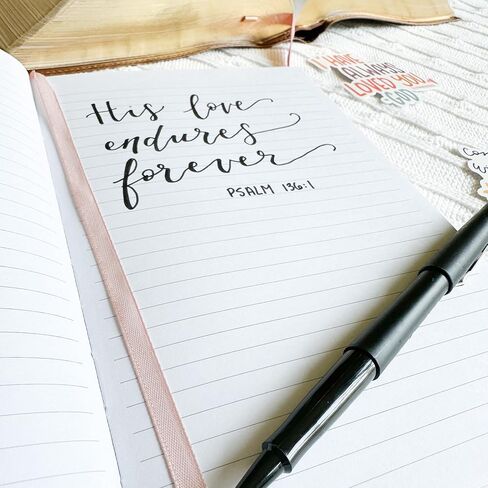 His love
endures
forever
PSALM 136:1
I HAVE
ALWAYS
LOVED YOU
GOD